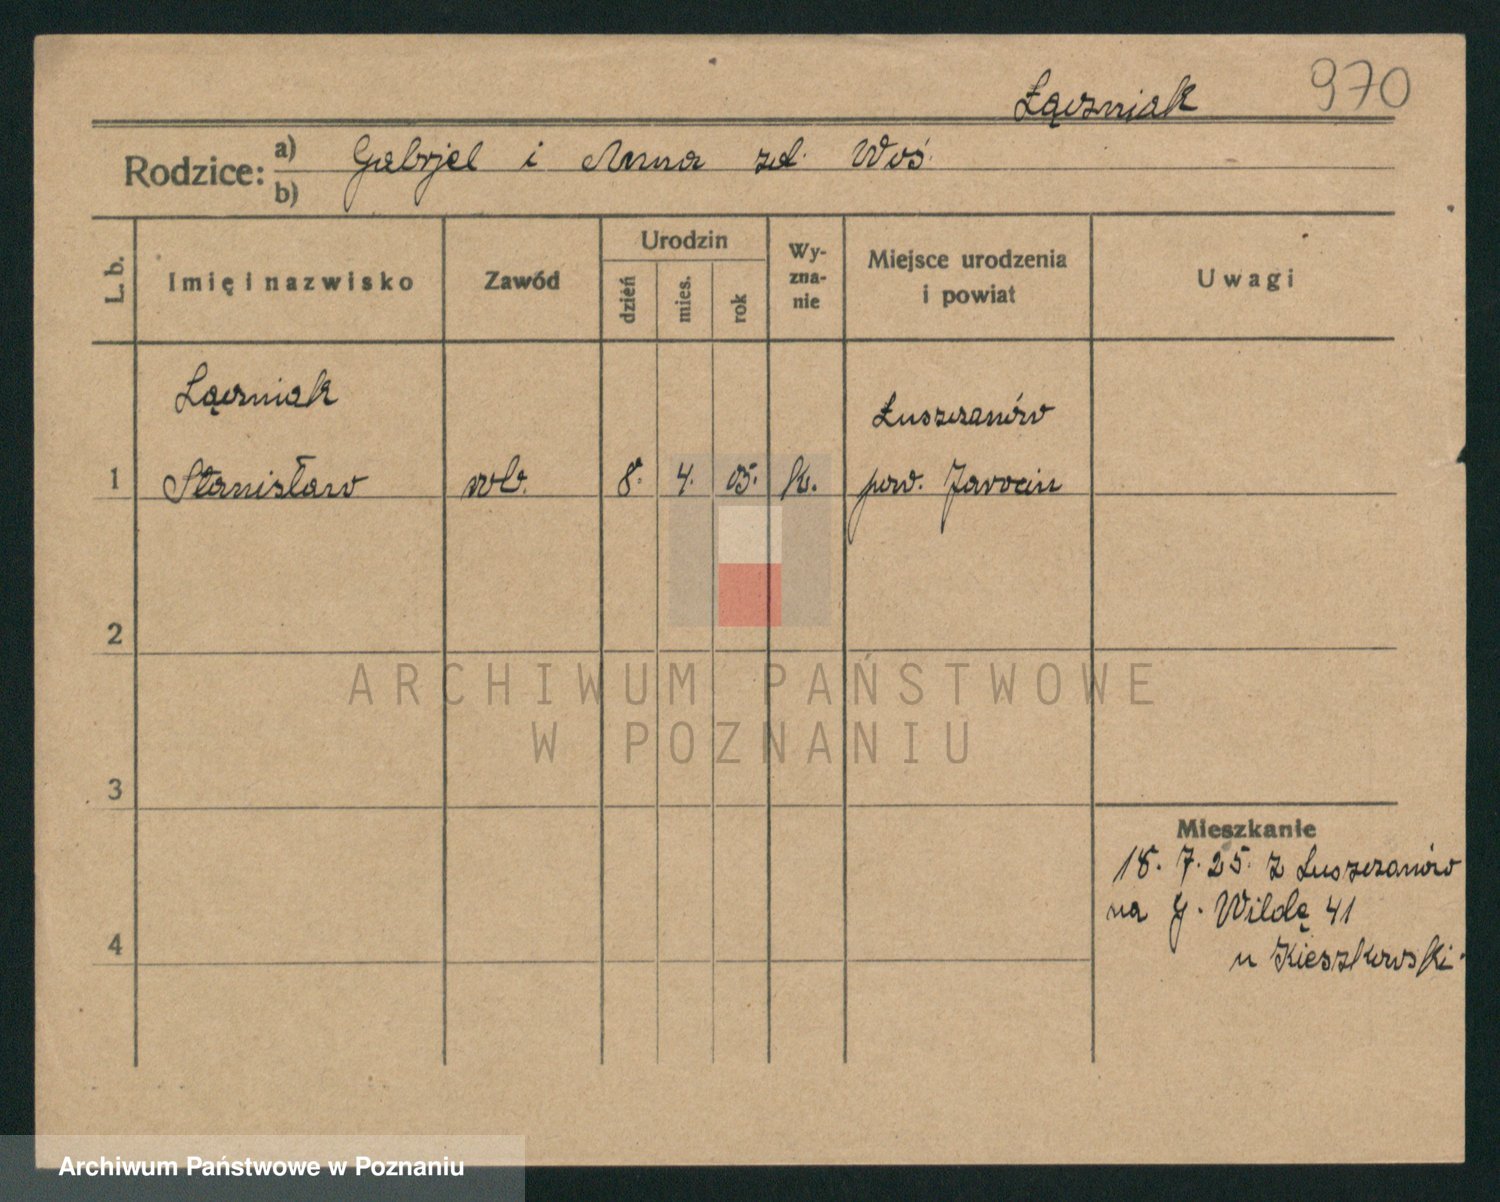 Łączniak 970
Rodzice: a) Gabrjel i Anna zd. Woś.
b)
L. b. Imię i nazwisko Zawód Urodzin dzień mies. rok Wyznanie Miejsce urodzenia i powiat Uwagi
Łączniak Łuszczanów
1 Stanisław rob. 8. 4. 05. k. pow. Jarocin
2
ARCHIWUM PAŃSTWOWE
W POZNANIU
3
Mieszkanie
18. 7. 25. z Łuszczanów
na G. Wildę 41
4
u Kieszkowski.
Archiwum Państwowe w Poznaniu